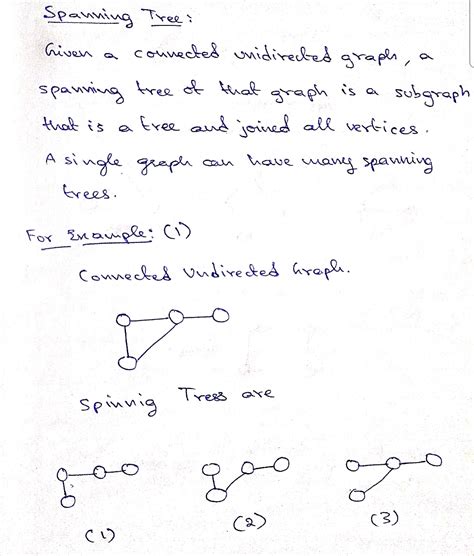 Spanning Tree:
Given a connected unidirected graph, a
spanning tree of that graph is a subgraph
that is a tree and joined all vertices.
A single graph can have many spanning
trees.
For Example: (1)
Connected Undirected Graph.
Spinnig Tress are
(1)
(2)
(3)